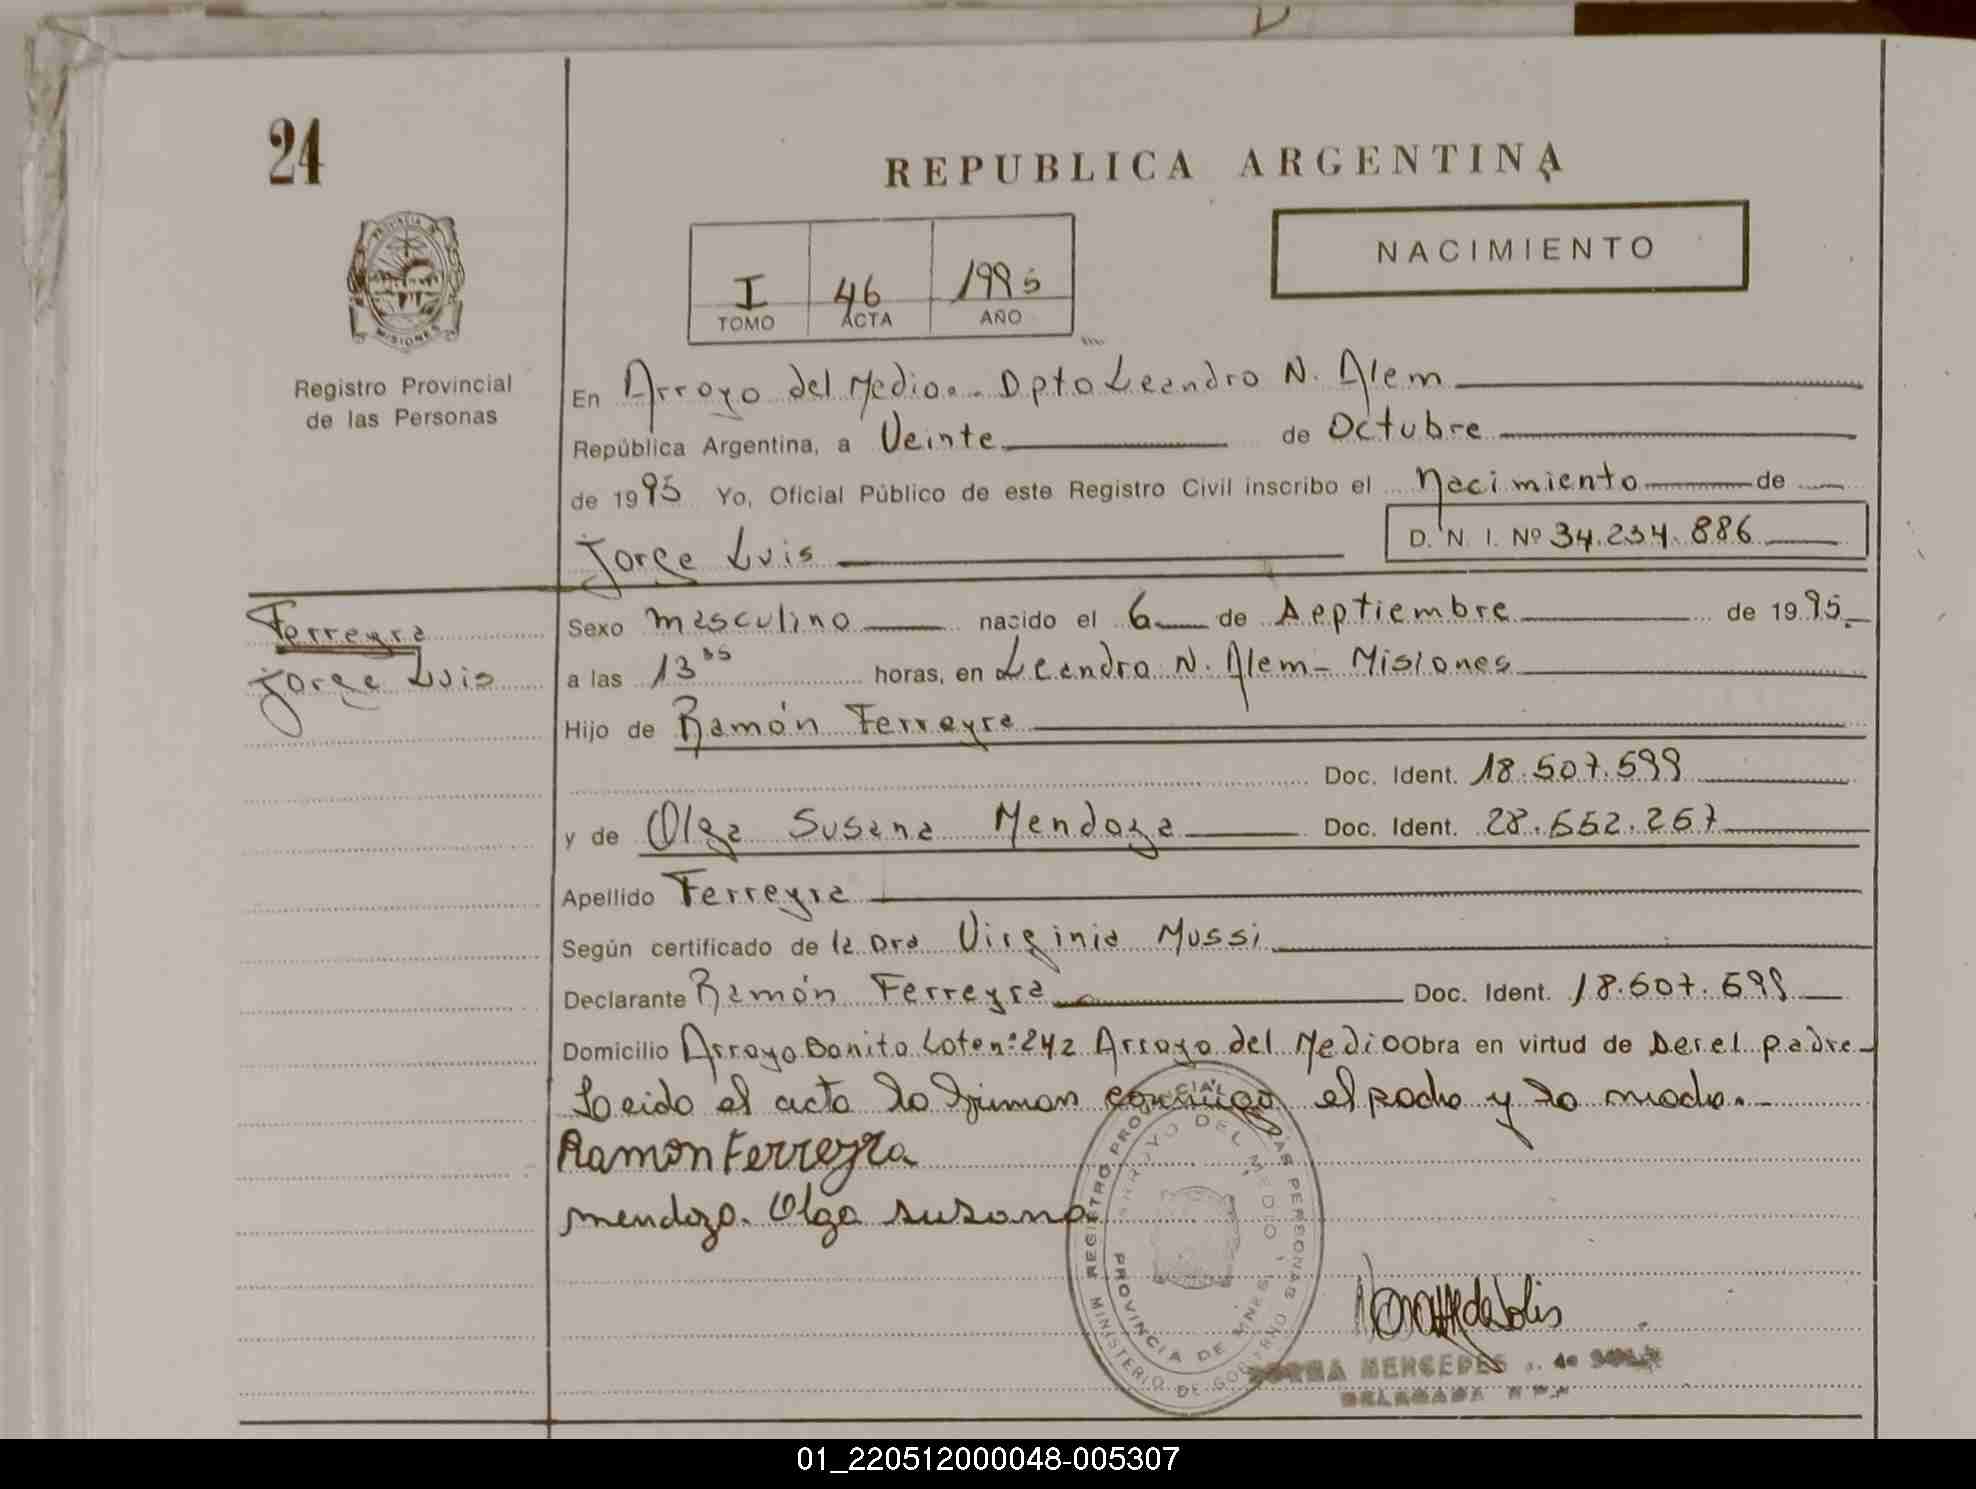 24
REPUBLICA ARGENTINA
NACIMIENTO
I 46 1995
TOMO ACTA AÑO
PROVINCIA DE
MISIONES
Registro Provincial
de las Personas
En Arroyo del Medio.- Dpto Leandro N. Alem
República Argentina, a Veinte de Octubre
de 1995 Yo, Oficial Público de este Registro Civil inscribo el Nacimiento de
Jorge Luis D. N. I. Nº 34.234.886
Ferreyra
Jorge Luis
Sexo masculino nacido el 6 de Septiembre de 1995.
a las 13 35 horas, en Leandro N. Alem - Misiones
Hijo de Ramón Ferreyra
Doc. Ident. 18.507.599
y de Olga Susana Mendoza Doc. Ident. 28.552.257
Apellido Ferreyra
Según certificado de la Dra Virginia Mussi
Declarante Ramón Ferreyra Doc. Ident. 18.507.599
Domicilio Arroyo Bonito Lote n: 242 Arroyo del Medio Obra en virtud de Ser el padre
Leido el acta la firman conmigo el padre y la madre.-
Ramon Ferreyra
mendoza. Olga susana.
REGISTRO PROVINCIAL DE LAS PERSONAS
ARROYO DEL MEDIO
PROVINCIA DE MNES.
MINISTERIO DE GOBIERNO
NORMA MERCEDES de
DELEGADA
01_220512000048-005307